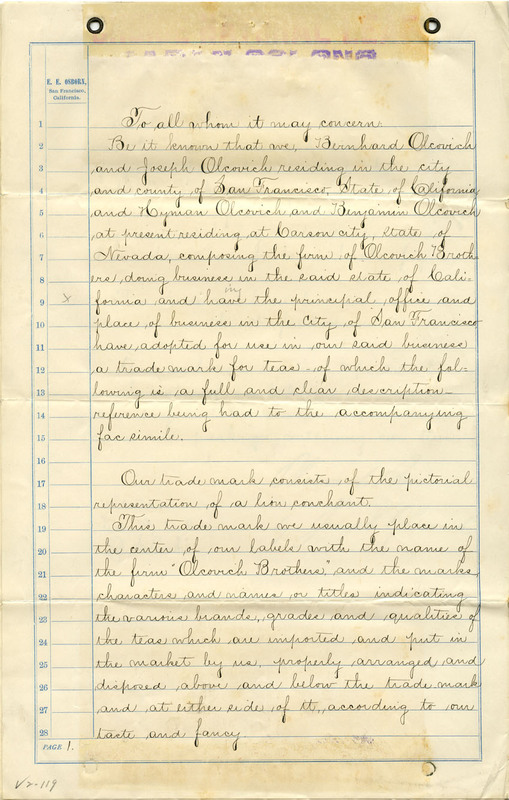 E. E. OSBORN,
San Francisco,
California.
1 To all whom it may concern:
2 Be it known that we, Bernhard Olcovich
3 and Joseph Olcovich residing in the city
4 and county of San Francisco, State of California
5 and Hyman Olcovich and Benjamin Olcovich
6 at present residing at Carson city, State of
7 Nevada, composing the firm of Olcovich Broth-
8 ers, doing business in the said state of Cali-
ing
9 x fornia and have the principal office and
10 place of business in the City of San Francisco
11 have adopted for use in our said business
12 a trade mark for teas of which the fol-
13 lowing is a full and clear description
14 reference being had to the accompanying
15 fac simile.
16
17 Our trade mark consists of the pictorial
18 representation of a lion conchant.
19 This trade mark we usually place in
20 the center of our labels with the name of
21 the firm "Olcovich Brothers," and the marks
22 characters and names or titles indicating
23 the various brands, grades and qualities of
24 the teas which are imported and put in
25 the market by us, properly arranged and
26 disposed above and below the trade mark
27 and at either side of it, according to our
28 taste and fancy
PAGE 1.
V2-119